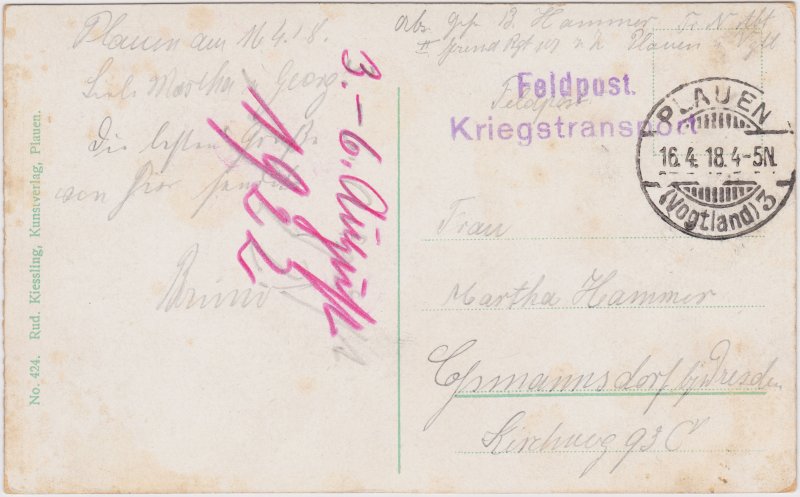 Plauen am 16.4.18.
Liebe Martha u Georg.
Die besten Grüße
von hier sendet
Bruno
3.-6. August
1922
No. 424. Rud. Kiessling, Kunstverlag, Plauen.
Abs. Gefr B. Hammer Tr. N Abt
Plauen i Vgtl
Feldpost.
Feldpost
Kriegstransport
PLAUEN
16.4.18.4-5N.
(Vogtland) 3
Frau
Martha Hammer
Coßmannsdorf b/Dresden
Kirchweg 93 C